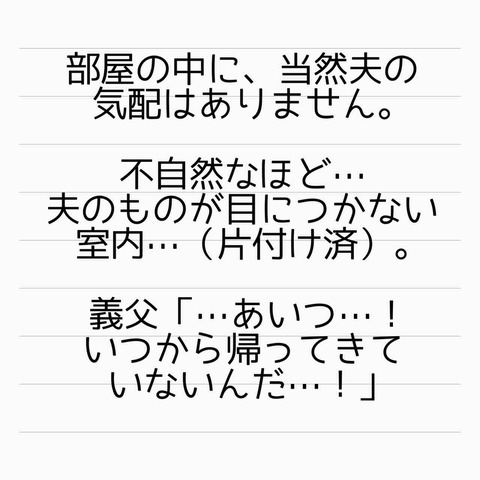 部屋の中に、当然夫の
気配はありません。
不自然なほど…
夫のものが目につかない
室内…（片付け済）。
義父「…あいつ…！
いつから帰ってきて
いないんだ…！」